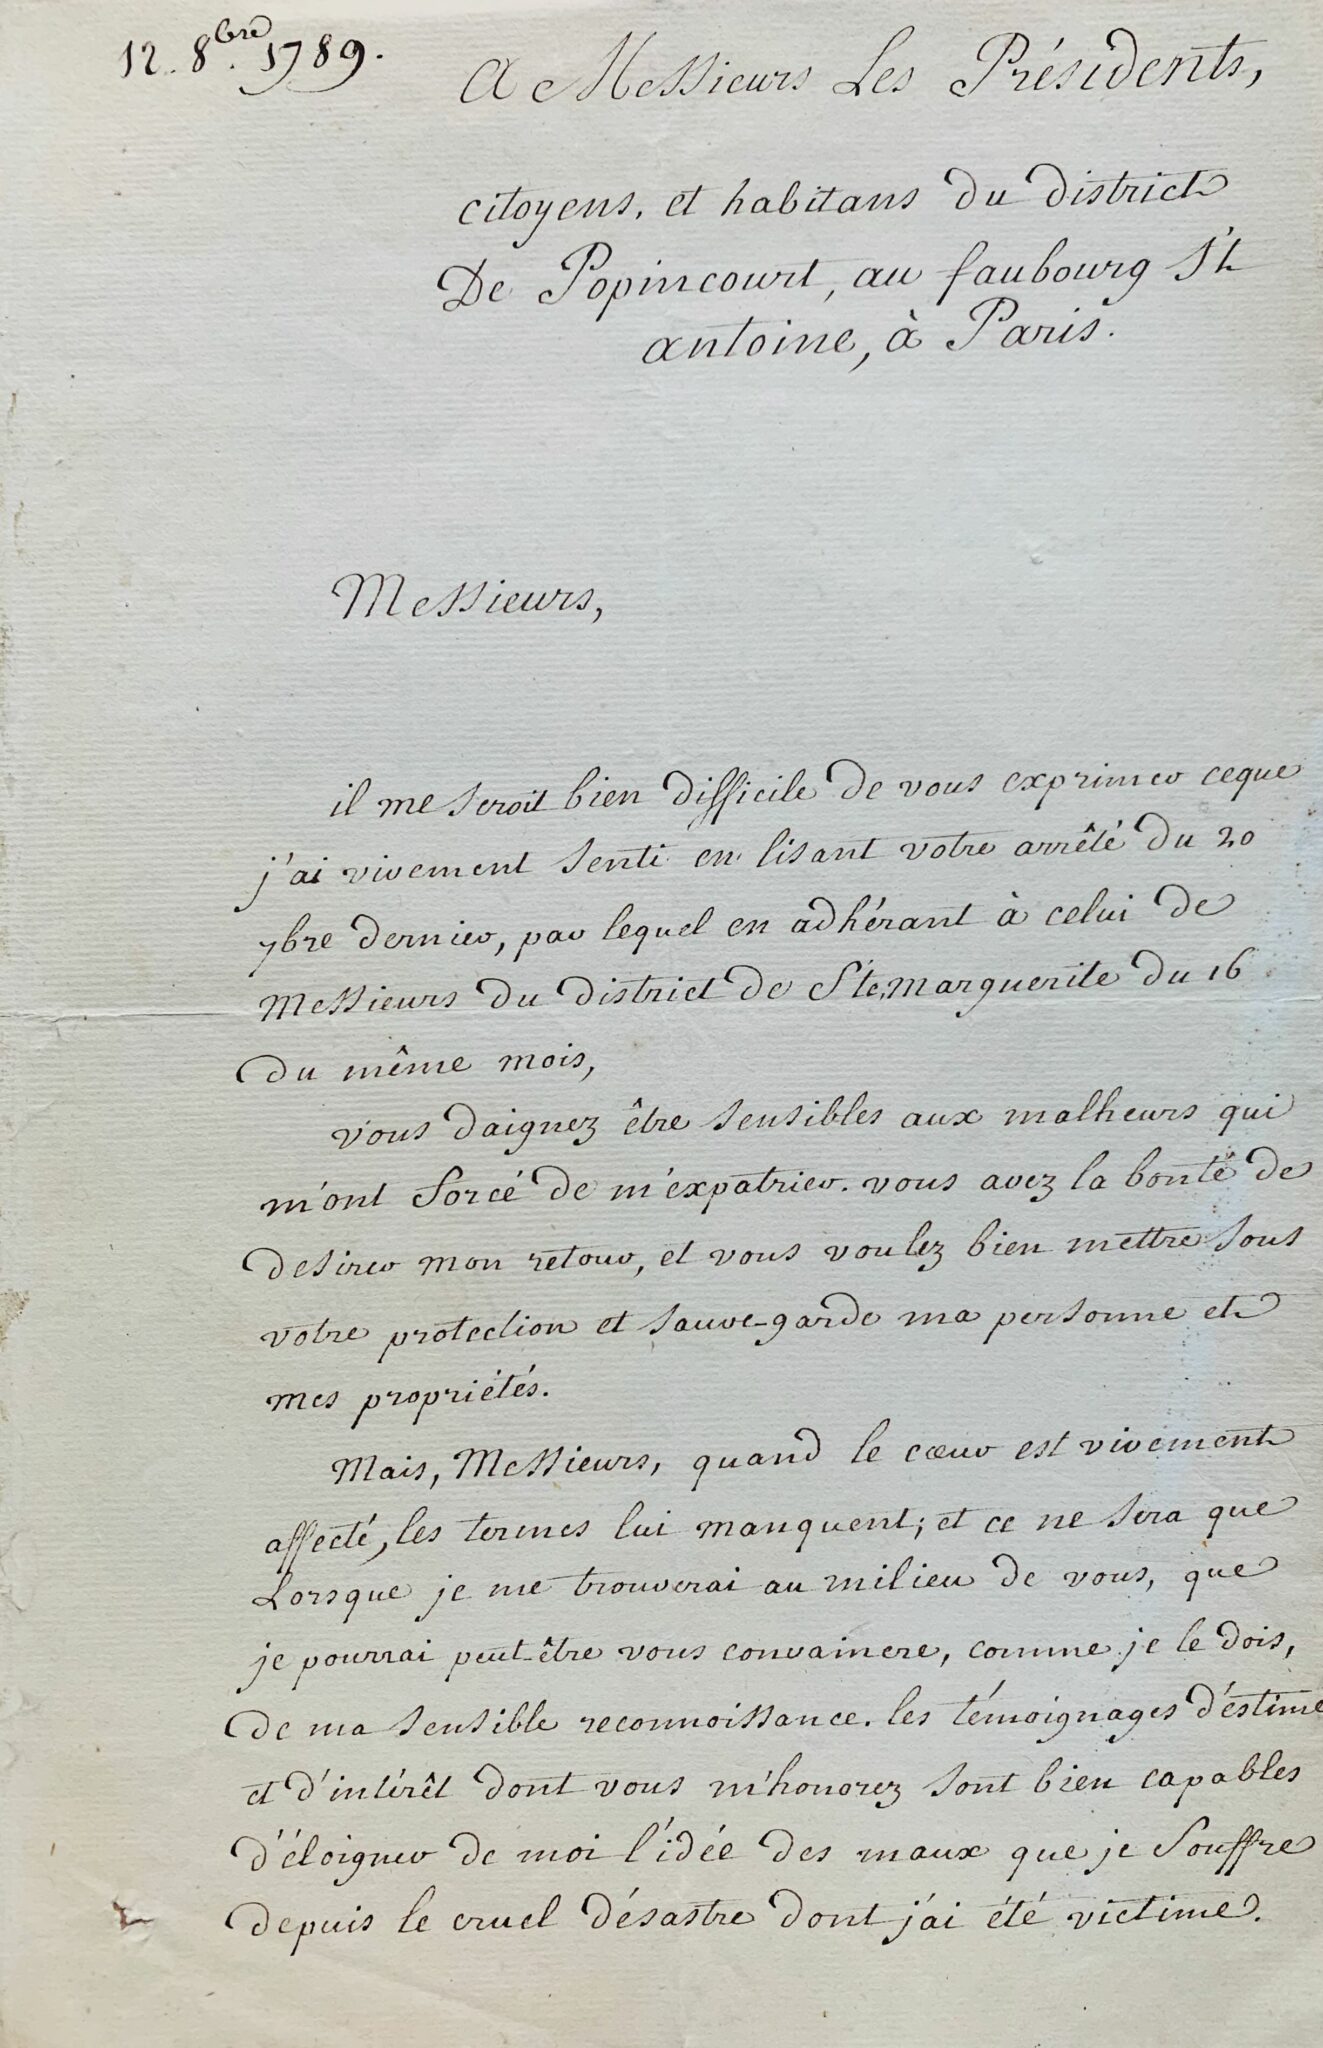 12. 8bre 1789.
A Messieurs Les Présidents,
citoyens, et habitans du district
De Popincourt, au faubourg St
antoine, à Paris.
Messieurs,
il me seroit bien difficile de vous exprimer ceque
j'ai vivement senti en lisant votre arrêté du 20
7bre dernier, par lequel en adhérant à celui de
Messieurs du district de Ste. marguerite du 16
du même mois,
vous daignez être sensibles aux malheurs qui
m'ont forcé de m'expatrier. vous avez la bonté de
desirer mon retour, et vous voulez bien mettre sous
votre protection et sauve-garde ma personne et
mes propriétés.
Mais, Messieurs, quand le cœur est vivement
affecté, les termes lui manquent; et ce ne sera que
Lorsque je me trouverai au milieu de vous, que
je pourrai peut-être vous convaincre, comme je le dois,
de ma sensible reconnoissance. les témoignages d'éstime
et d'intérêt dont vous m'honorez sont bien capables
d'éloigner de moi l'idée des maux que je souffre
depuis le cruel désastre dont j'ai été victime.